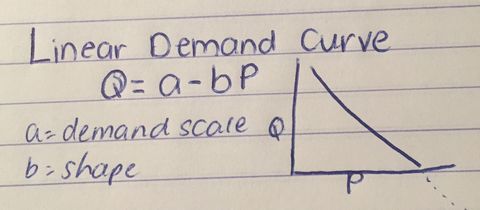 Linear Demand Curve
Q = a - bP
a = demand scale
b = shape
Q
P